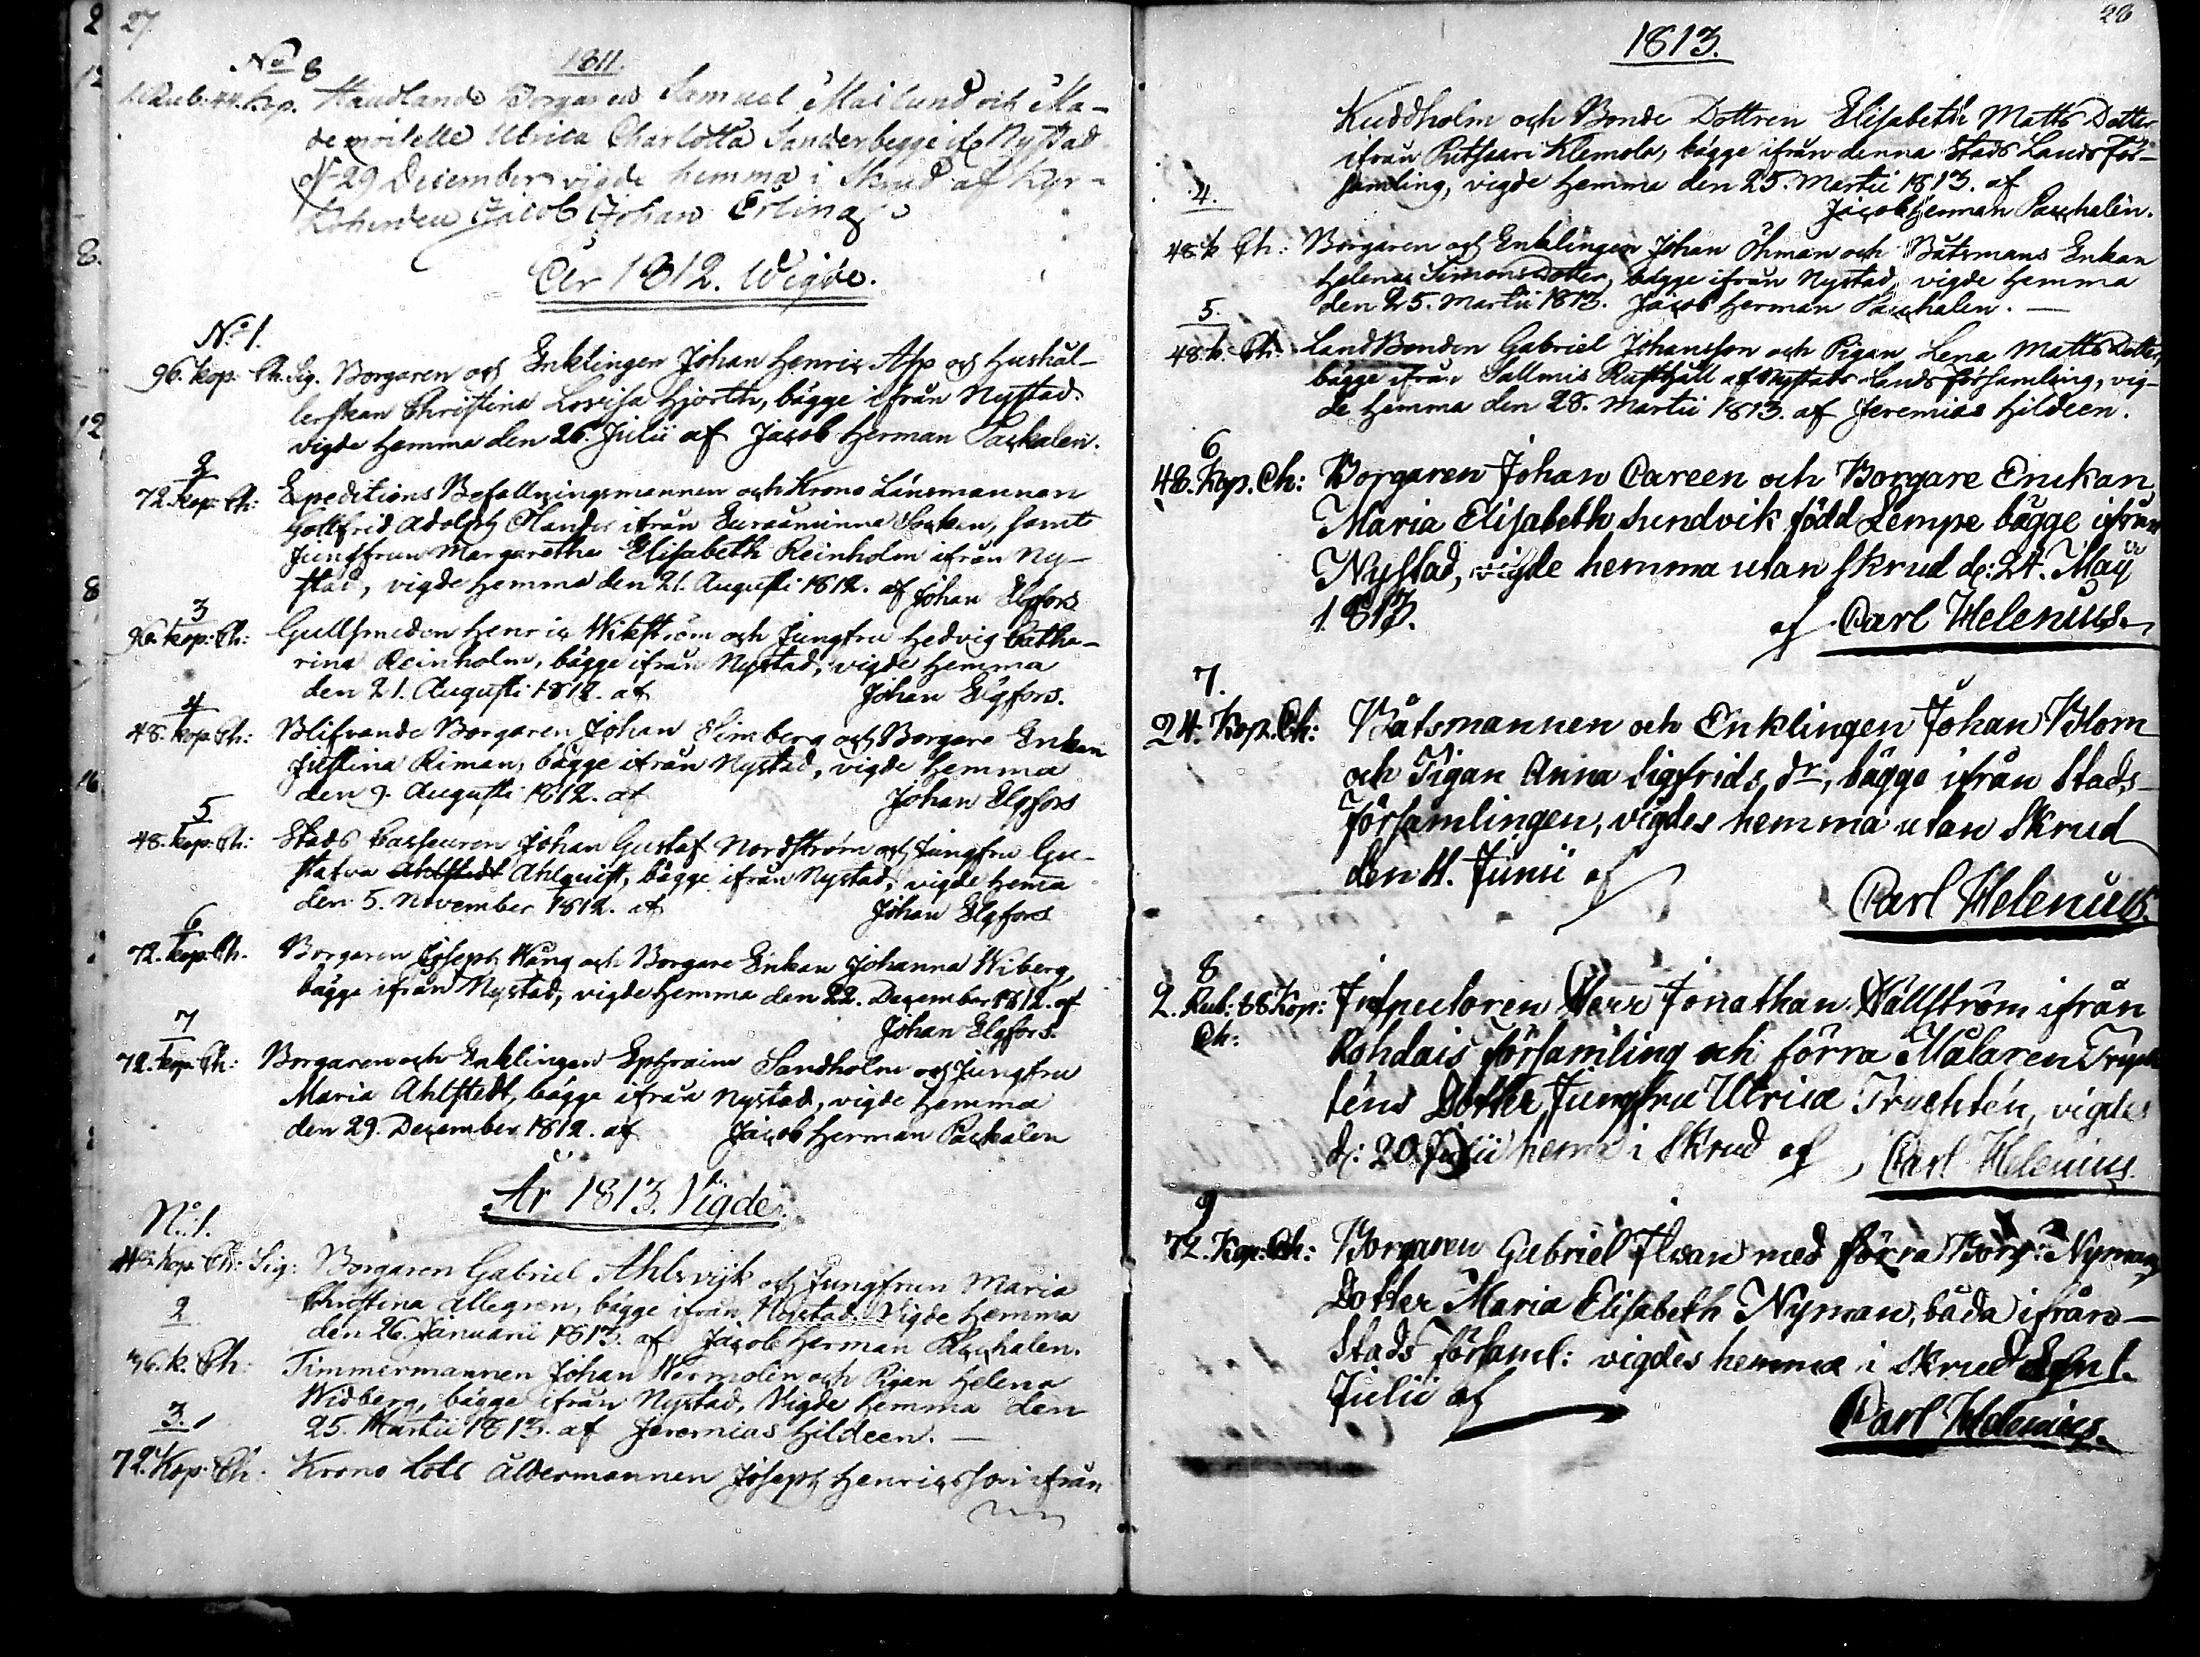 27
1811.
No 8
1. Rub: 44. kop. Handlande Borgaren Samuel Mailund och Ma-
demoiselle Ulrica Charlotta Sander begge if. Nystad
d. 29 December vigde hemma i Skrud af Kyr-
koherden Jacob Johan Erling
År 1812. Wigde.
No 1.
96. kop. Ch. Sig. Borgaren och Enklingen Johan Henric Alp och Hushål-
lerskan Christina Lovisa Hjorth, bägge ifrån Nystad.
vigde hemma den 26. Julii af Jacob Herman Pacchalen.
2
72. kop: Ch: Expeditions Befallningsmannen och Krono Länsmannen
Gottfrid Adolph Olander ifrån Euraåminne Socken, samt
Jungfrun Margaretha Elisabeth Reinholm ifrån Ny-
stad, vigde hemma den 21. Augusti 1812. af Johan Elgfors
3
96. kop: Ch: Gullsmeden Henric Wikström och Jungfru Hedvig Catha-
rina Reinholm, bägge ifrån Nystad, vigde hemma
den 21. Augusti 1812. af Johan Elgfors.
4
48. kop. Ch: Blifvande Borgaren Johan Simberg och Borgare Enkan
Justina Riman, bägge ifrån Nystad, vigde hemma
den 9. Augusti 1812. af Johan Elgfors
5
48. kop. Ch: Stads Casseuren Johan Gustaf Nordström och Jungfru Gu-
stafva Ahlstedt Ahlquist, bägge ifrån Nystad, vigde hema
den 5. November 1812. af Johan Elgfors
6
72. kop. Ch. Borgaren Joseph Wång och Borgare Enkan Johanna Wiberg,
bägge ifrån Nystad, vigde hemma den 22. December 1812. af
Johan Elgfors.
7
72. kop. Ch: Borgaren och Enklingen Ephraim Sandholm och Jungfru
Maria Ahlstedt, bägge ifrån Nystad, vigde hemma
den 29. December 1812. af Jacob Herman Pacchalen
År 1813. Vigde.
No. 1.
48. Kop. Ch: Sig: Borgaren Gabriel Ahlsvijk och Jungfrun Maria
Christina Allegren, bägge ifrån Nystad. Vigde hemma
den 26. Januarii 1813. af Jacob Herman Pacchalen.
2
36. k. Ch: Timmermannen Johan Wermolin och Pigan Helena
Widberg, bägge ifrån Nystad, Vigde hemma den
25. Martii 1813. af Jeremias Hildeen.
3.
72. Kop: Ch: Krono Lots Åldermannen Joseph Henricsson ifrån
28
1813.
Kuddholm och Bonde Dottren Elisabeth Matts Dotter
ifrån Putsaari Klemola, bägge ifrån denna Stads Lands För-
samling, vigde hemma den 25. Martii 1813. af
Jacob Herman Pacchalen.
4.
48. k Ch: Borgaren och Enklingen Johan Öhman och Båtsmans Enkan
Helena Simons Dotter, bägge ifrån Nystad, vigde hemma
den 25. Martii 1813. Jacob Herman Pacchalen.
5.
48. k. Ch: LandBonden Gabriel Johansson och Pigan Lena Matts Dotter,
bägge ifrån Sallmis Rusthåll af Nystads Lands församling, vig-
de hemma den 28. Martii 1813. af Jeremias Hildeen.
6
48. Kop. Ch: Borgaren Johan Careen och Borgare Enckan
Maria Elisabeth Sundvik född Lempe bägge ifrån
Nystad, vigde hemma utan skrud d: 24. Maij
1813. af Carl Helenius.
7.
24. Kop. Ch: Båtsmannen och Enklingen Johan Blom
och Pigan Anna Sigfrids dr, bägge ifrån Stads-
församlingen, vigdes hemma utan Skrud
den 11. Junii af
Carl Helenius.
8
2. Rub: 88 Kop: Ch: Inspectoren Herr Jonathan Hällström ifrån
Rohdais församling och förra Målaren Trych-
téns Dotter Jungfru Ulrica Truchtén, vigdes
d: 20. Junii hema i Skrud af Carl Helenius.
9
72. Kop: Ch: Borgaren Gabriel Ilvan med förra Borg: Nymans
Dotter Maria Elisabeth Nyman, båda ifrån
Stads församl: vigdes hemma i Skrud den 1.
Julii af
Carl Helenius.